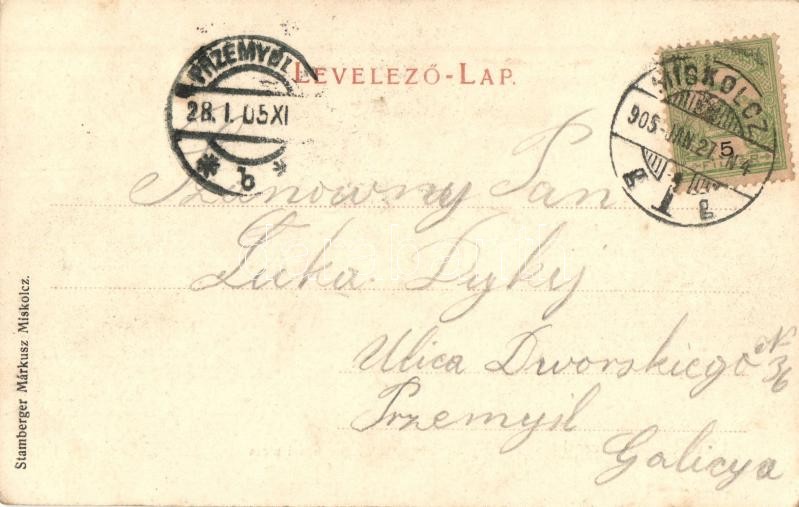 PRZEMYŚL
28. I. 05 XI
* b *
LEVELEZŐ-LAP.
MISKOLCZ
905 JAN. 27
5
Szanowny Pan
Łuka Dykij
Ulica Dworskiego N 36
Przemyśl
Galicya
Stamberger Márkusz Miskolcz.